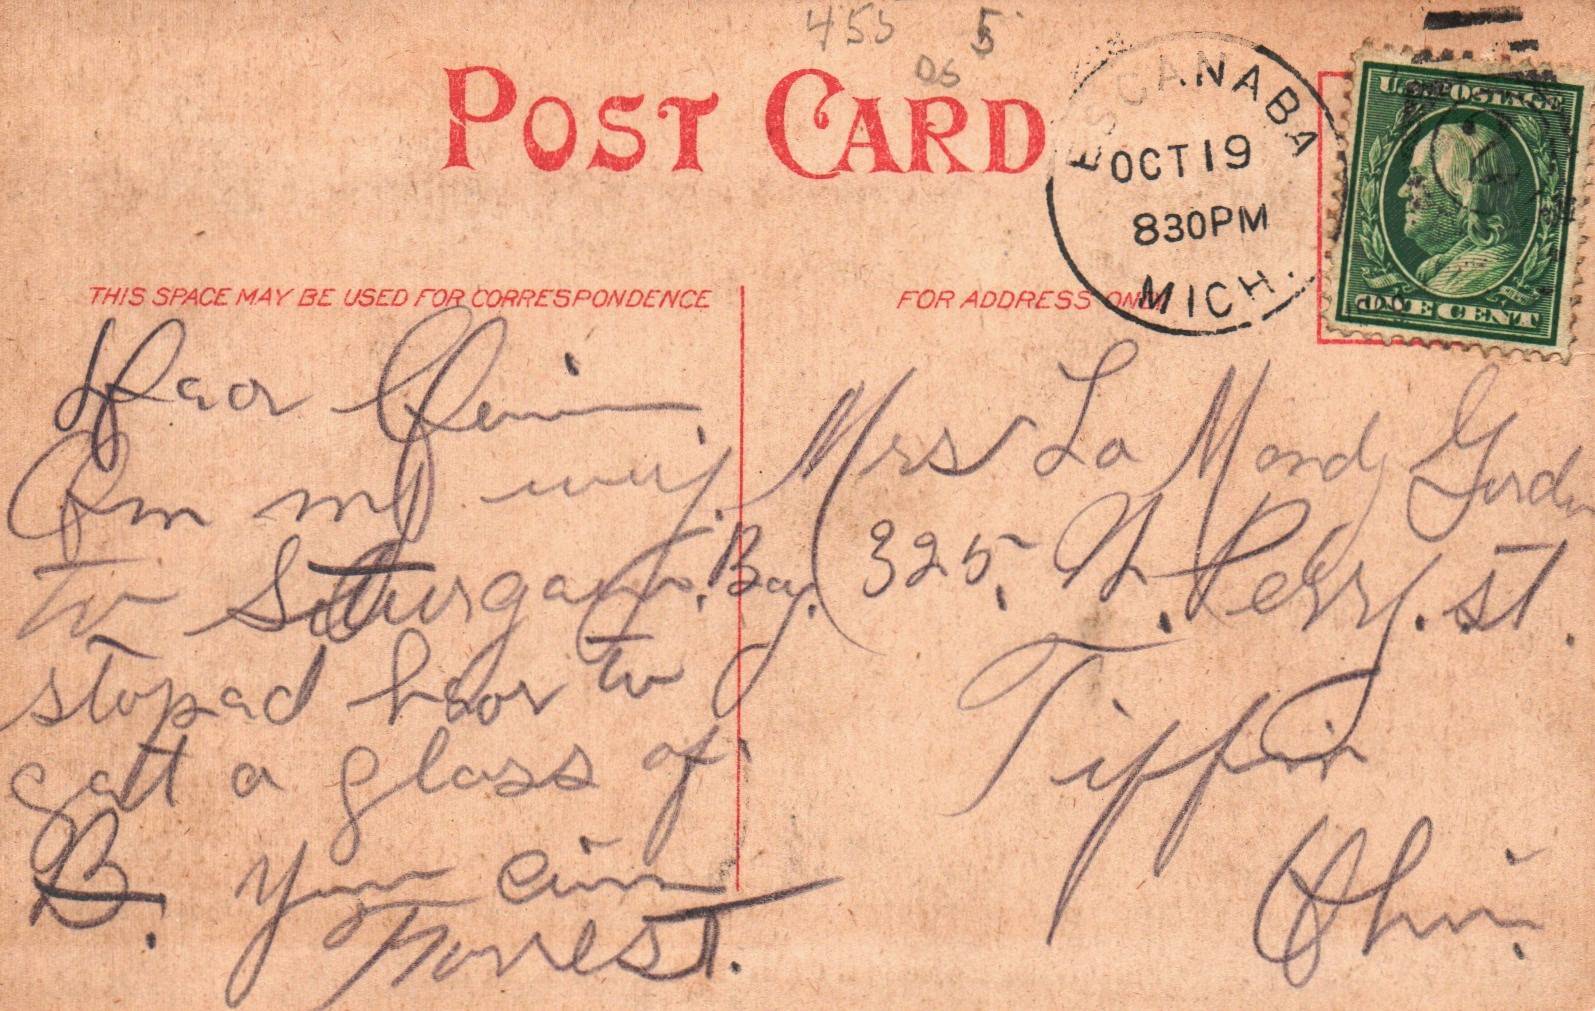 455 5
05
POST CARD
ESCANABA
OCT 19
830PM
MICH.
U.S. POSTAGE
ONE CENT
THIS SPACE MAY BE USED FOR CORRESPONDENCE
FOR ADDRESS ONLY
Dear
Am on my way
to Sturgan. Bay.
stopad hear to
gatt a glass of
B. your
Forrest.
Mrs La Mond Gordon
325. N. Perry. st.
Tiffin
Ohio.